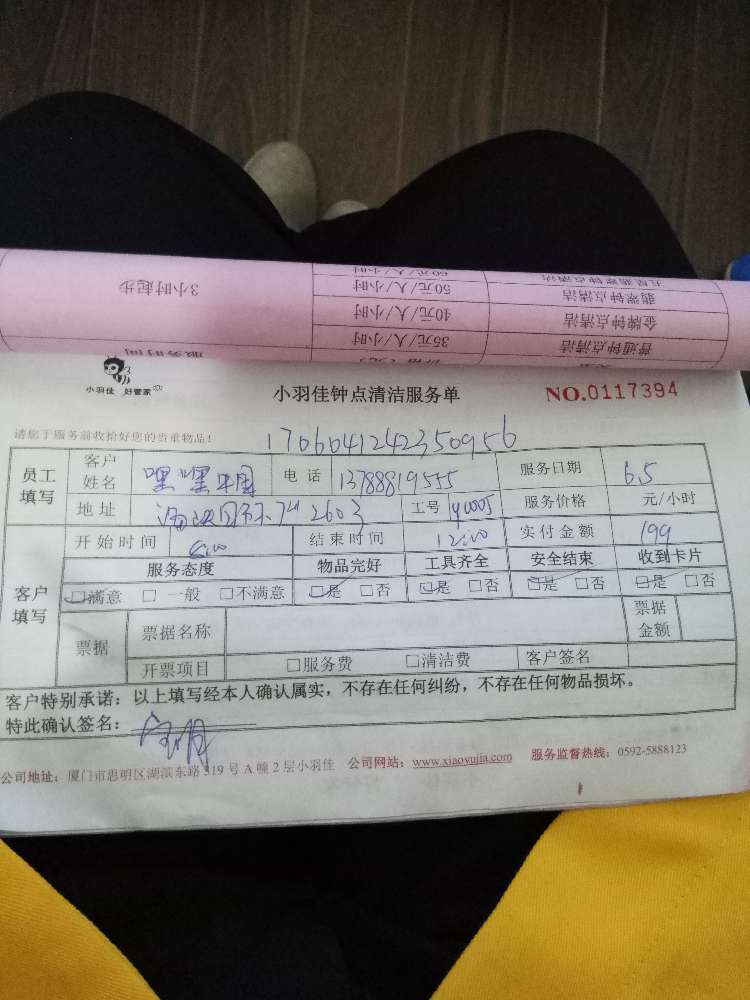 60元/人/小时
翡翠钟点清洁 50元/人/小时 3小时起步
金牌钟点清洁 40元/人/小时
普通钟点清洁 35元/人/小时
服务时间
小羽佳 好管家
小羽佳钟点清洁服务单
NO.0117394
请您于服务前收拾好您的贵重物品!
1706041242350956
员工填写 客户姓名 嘿嘿 电话 13788819555 服务日期 6.5
地址 2603 工号 服务价格 元/小时
客户填写 开始时间 结束时间 12:00 实付金额 199
服务态度 物品完好 工具齐全 安全结束 收到卡片
□满意 □一般 □不满意 □是 □否 □是 □否 □是 □否 □是 □否
票据 票据名称 票据金额
开票项目 □服务费 □清洁费 客户签名
客户特别承诺:以上填写经本人确认属实,不存在任何纠纷,不存在任何物品损坏。
特此确认签名:
公司地址:厦门市思明区湖滨东路319号A幢2层小羽佳 公司网站:www.xiaoyujia.com 服务监督热线:0592-5888123